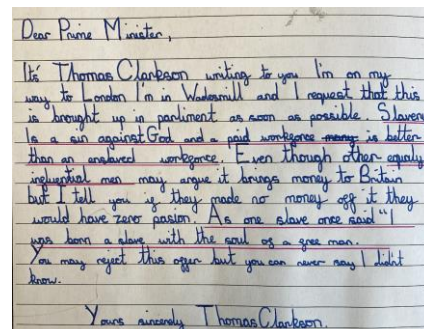 Dear Prime Minister,
Its' Thomas Clarkson writing to you I'm on my
way to London I'm in Wadesmill and I request that this
is brought up in parliment as soon as possible. Slavery
Is a sin against God and a paid workforce many is better
than an enslaved workforce. Even though other equaly
influential men may argue it brings money to Britain
but I tell you if they made no money off it they
would have zero pasion. As one slave once said "I
was born a slave with the soul of a free man.
You may reject this offer but you can never say I didn't
know.
Yours sincerely Thomas Clarkson.